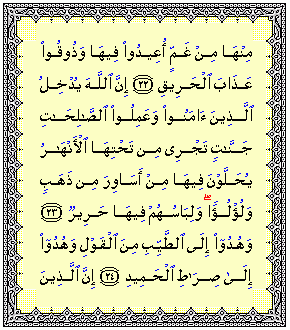 مِنْهَا مِنْ غَمٍّ أُعِيدُوا۟ فِيهَا وَذُوقُوا۟
عَذَابَ ٱلْحَرِيقِ ٢٢ إِنَّ ٱللَّهَ يُدْخِلُ
ٱلَّذِينَ ءَامَنُوا۟ وَعَمِلُوا۟ ٱلصَّـٰلِحَـٰتِ
جَنَّـٰتٍ تَجْرِى مِن تَحْتِهَا ٱلْأَنْهَـٰرُ
يُحَلَّوْنَ فِيهَا مِنْ أَسَاوِرَ مِن ذَهَبٍ
وَلُؤْلُؤًا ۖ وَلِبَاسُهُمْ فِيهَا حَرِيرٌ ٢٣
وَهُدُوٓا۟ إِلَى ٱلطَّيِّبِ مِنَ ٱلْقَوْلِ وَهُدُوٓا۟
إِلَىٰ صِرَٰطِ ٱلْحَمِيدِ ٢٤ إِنَّ ٱلَّذِينَ